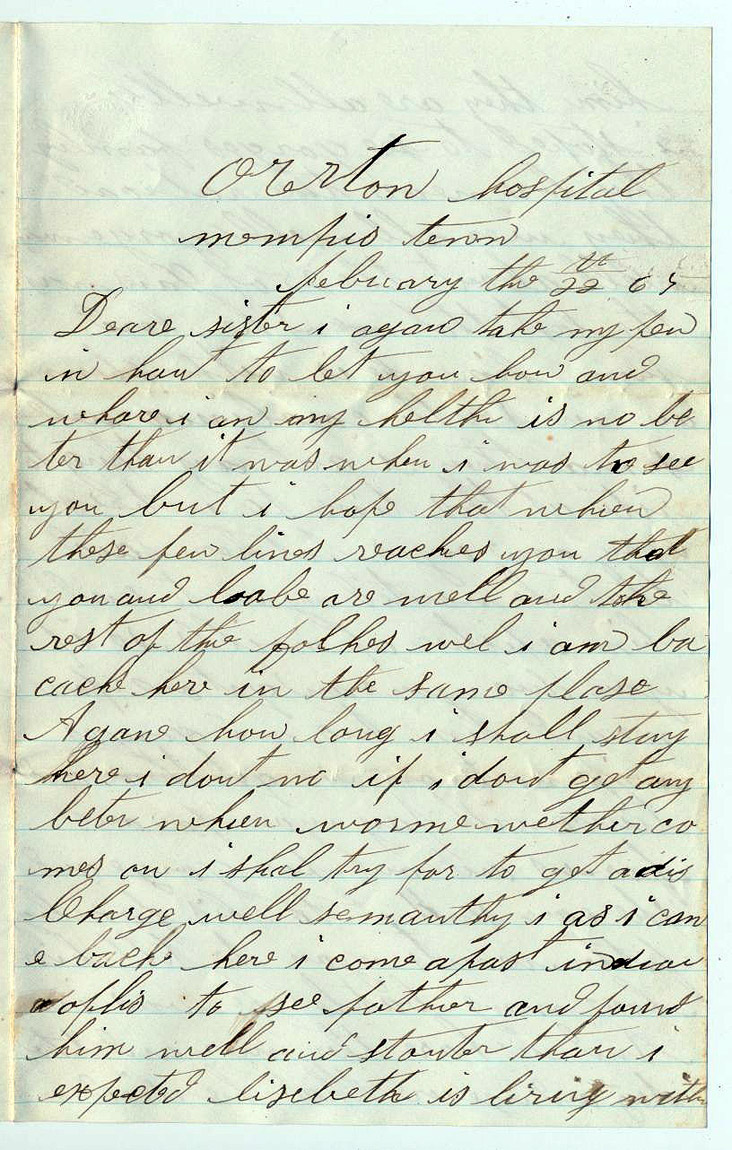 Overton hospital
mempis tenn
febuary the 22 th 65
Deare sister i agane take my pen
in hand to let you how and
whare i am my helth is no be
ter than it was when i was to see
you but i hope that when
these few lines reaches you that
you and loabe are well and the
rest of the folkes wel i am ba
cack here in the same plase
Agane how long i shall stay
here i dont no if i dont get any
beter when worme wether co
mes on i shal try for to get a dis
Charge well semanthy i as i cam
e back here i come apast indian
oplis to see father and found
him well and stouter than i
expected lisebeth is living with